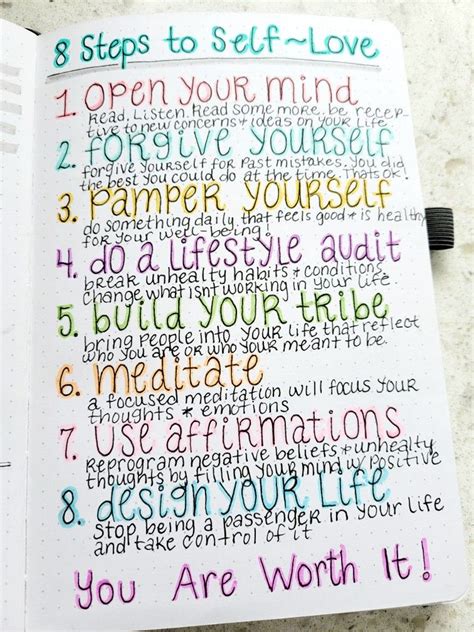 8 Steps to Self~Love
1. OPEN YOUR MIND
Read. Listen. Read some more. be recep-
tive to new concerns + ideas on your life
2. forgive yourself
forgive yourself for past mistakes. You did
the best you could do at the time. Thats ok!
3. Pamper yourself
do something daily that feels good + is healthy
for your well-being!
4. do a lifestyle audit
break unhealty habits + conditions.
Change what isnt working in your life.
5. build your tribe
bring people into your life that reflect
who you are or who your meant to be.
6. meditate
a focused meditation will focus your
thoughts * emotions
7. Use affirmations
Reprogram negative beliefs + unhealty
thoughts by filling your mind w/ Positive
8. design your Life
Stop being a passenger in your life
and take control of it
You Are Worth It!